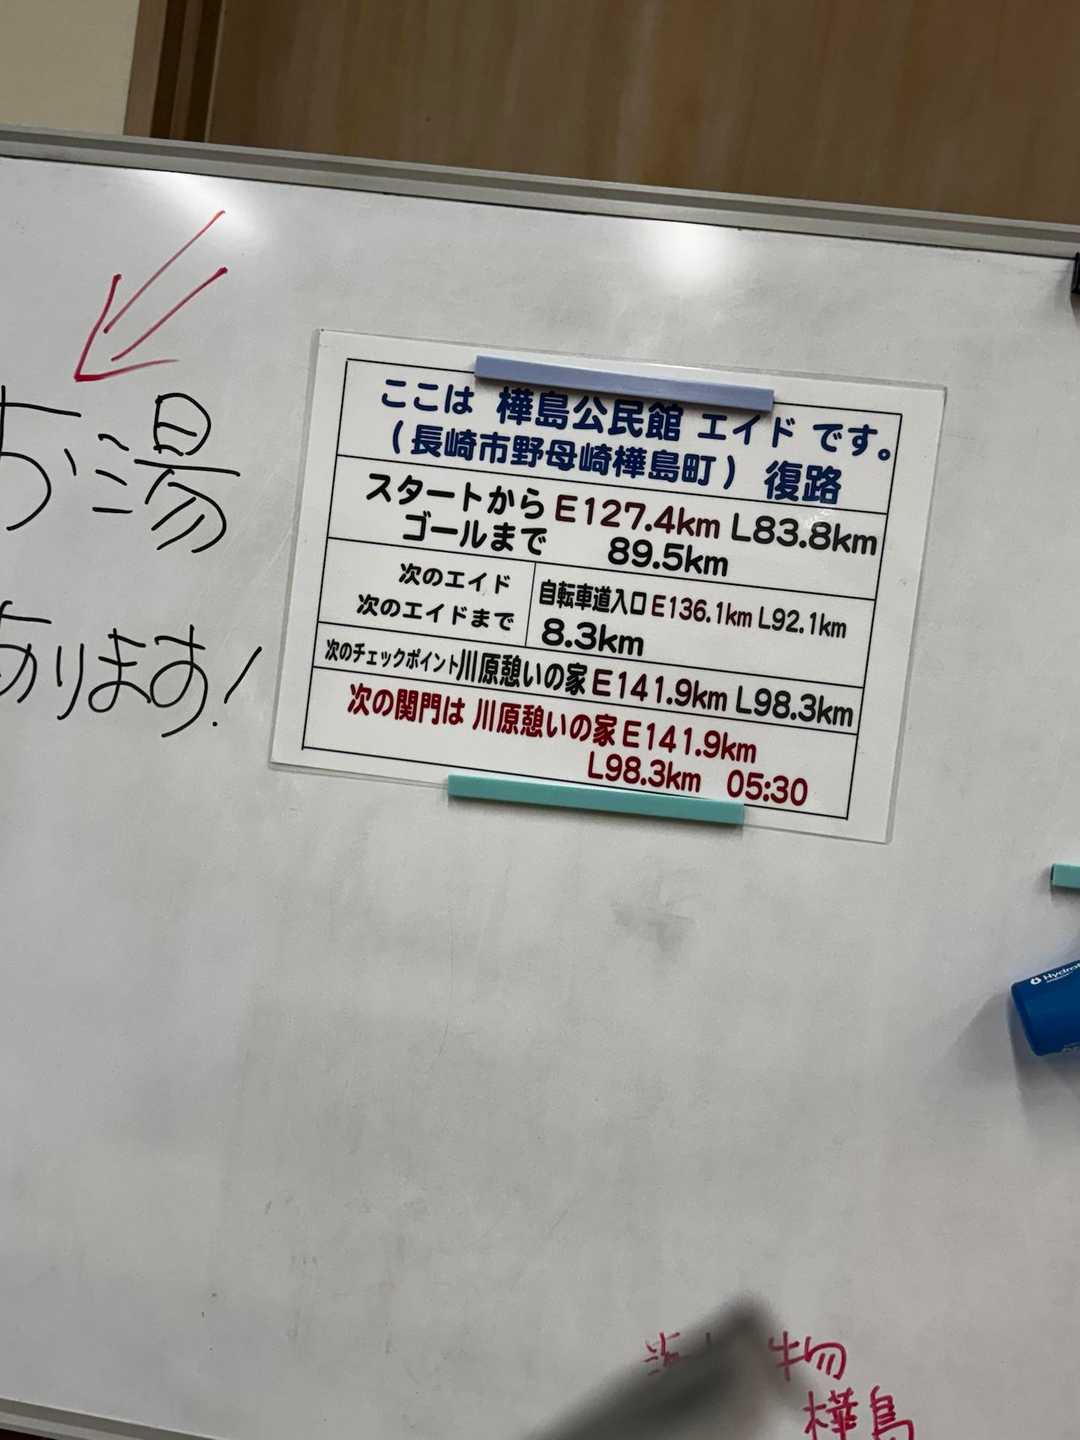 お湯
あります!
ここは 樺島公民館 エイド です。
(長崎市野母崎樺島町) 復路
スタートから E127.4km L83.8km
ゴールまで 89.5km
次のエイド 自転車道入口 E136.1km L92.1km
次のエイドまで 8.3km
次のチェックポイント 川原憩いの家 E141.9km L98.3km
次の関門は 川原憩いの家 E141.9km
L98.3km 05:30
物
樺島